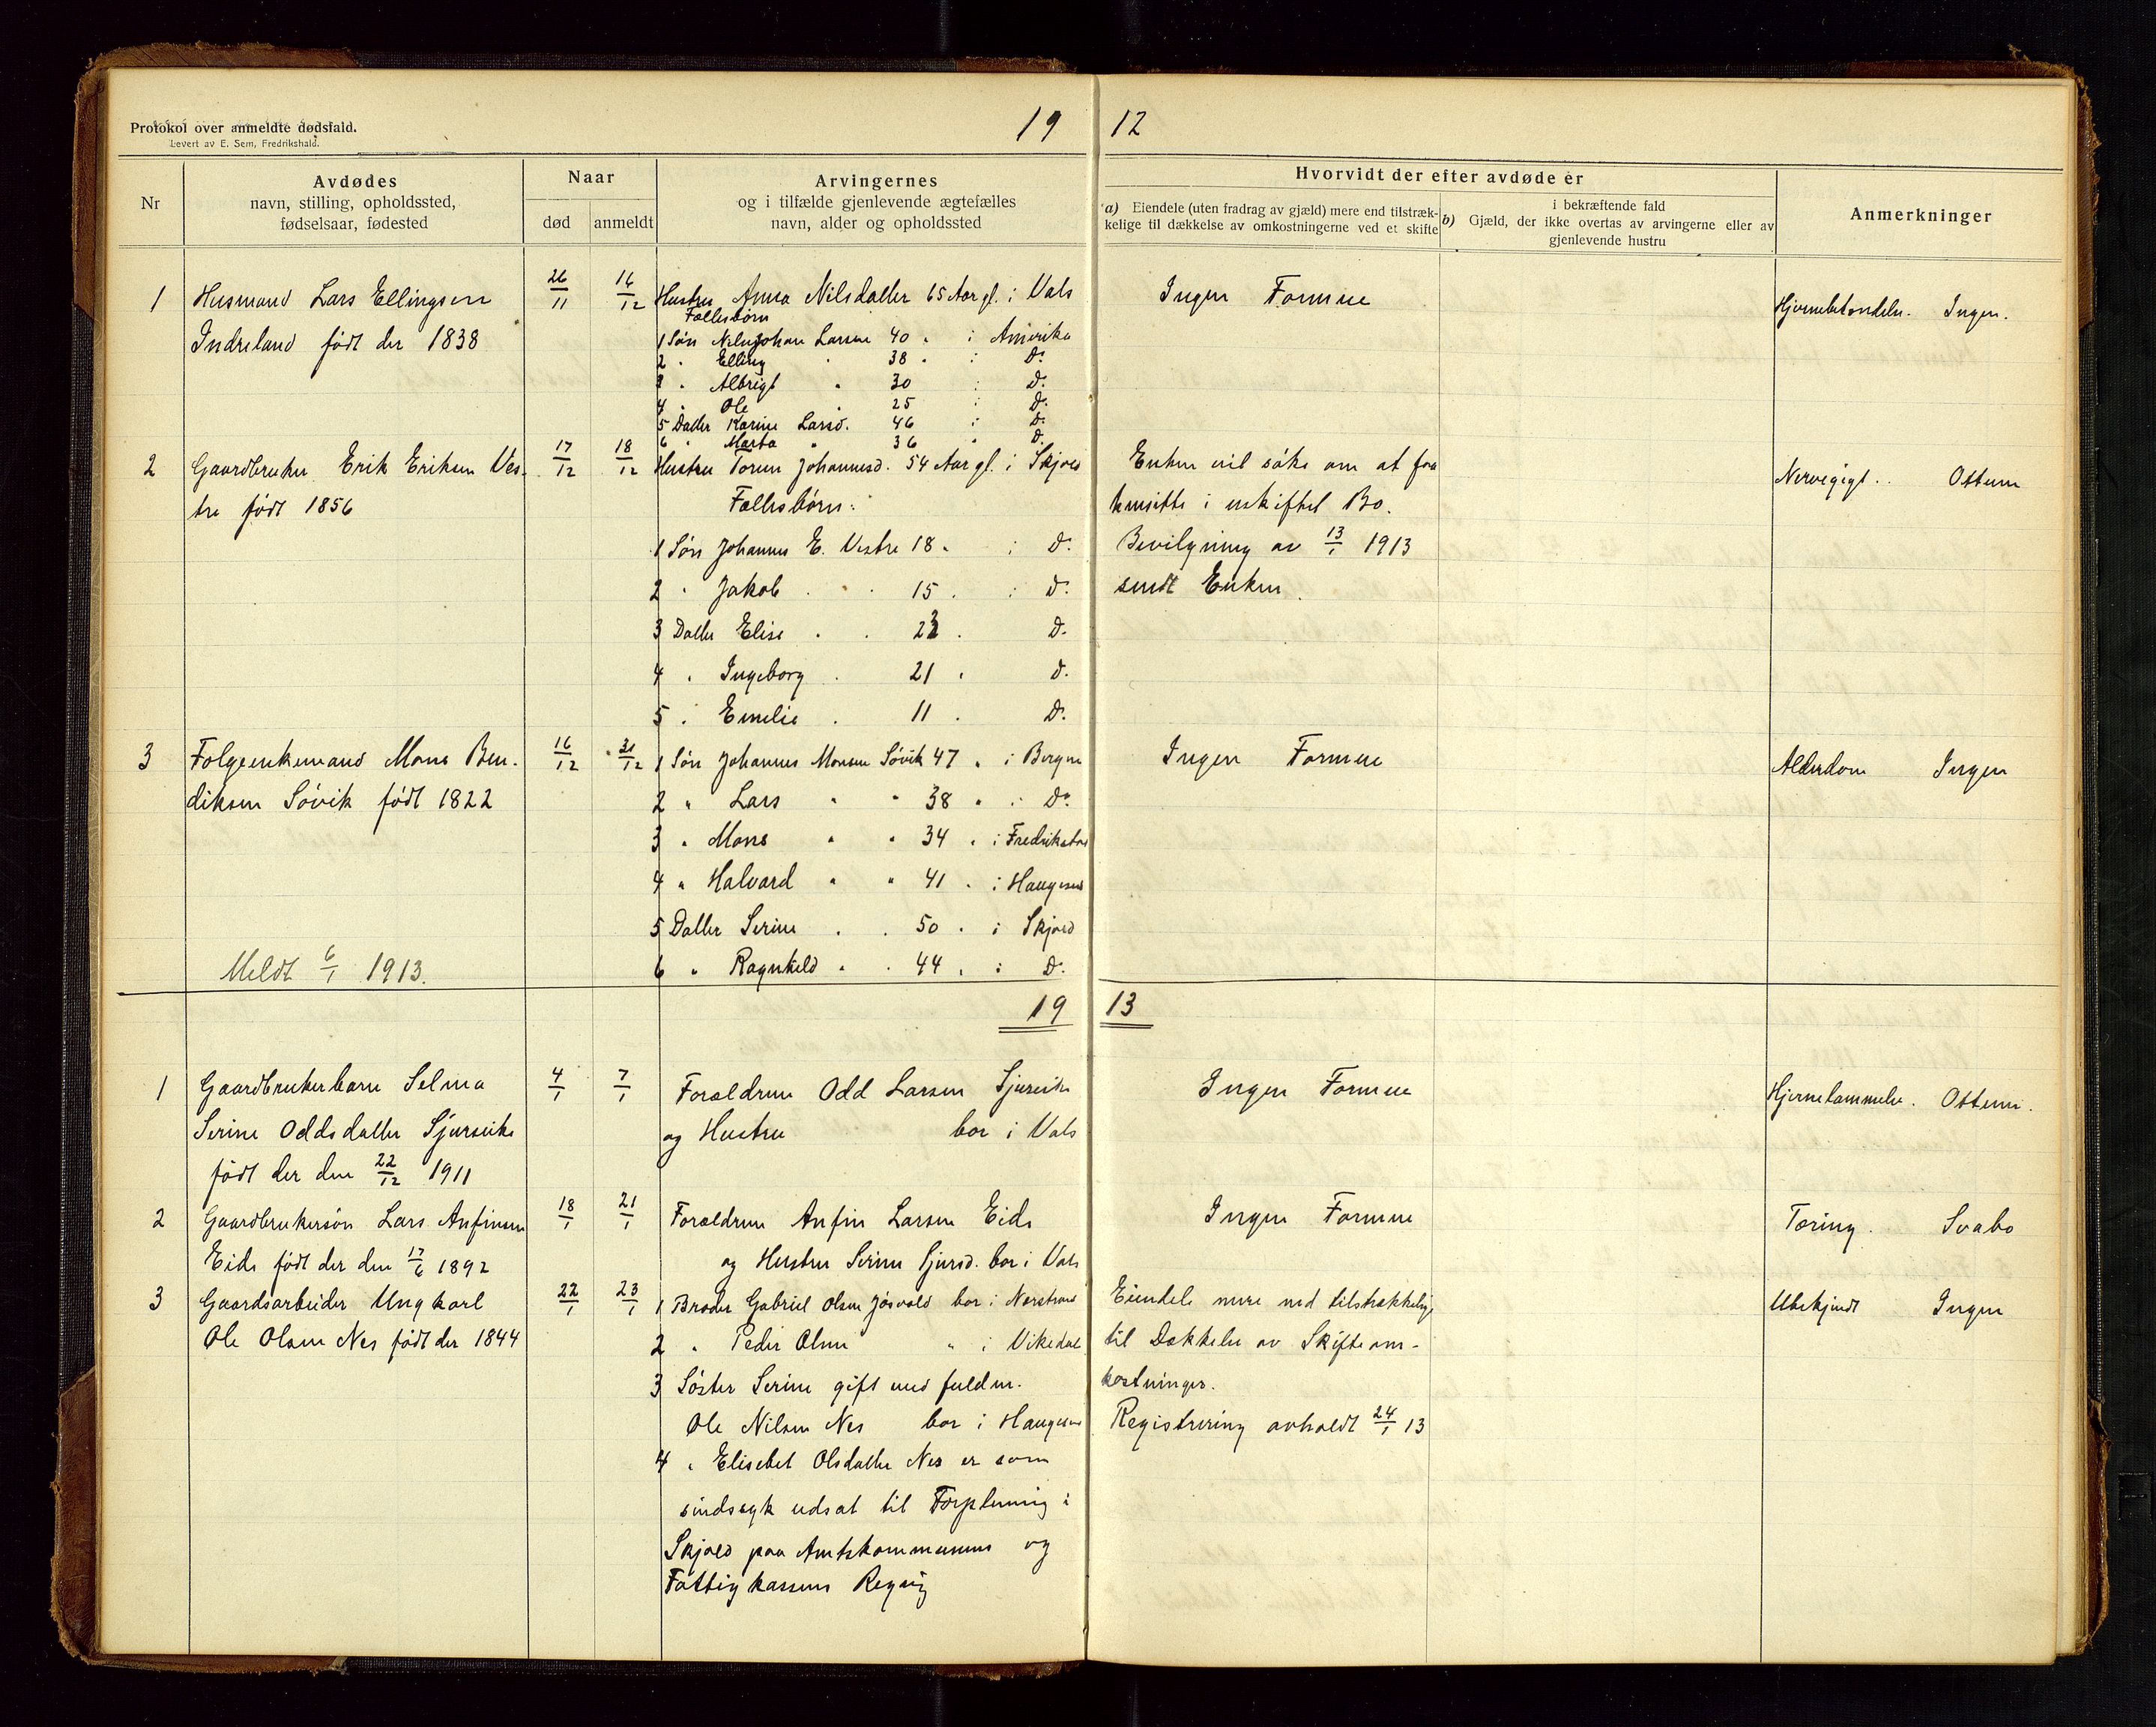 Protokol over anmeldte dødsfald.
Levert av E. Sem, Fredrikshald.
19 12
Nr
Avdødes
navn, stilling, opholdssted,
fødselsaar, fødested
Naar
død
anmeldt
Arvingernes
og i tilfælde gjenlevende ægtefælles
navn, alder og opholdssted
Hvorvidt der efter avdøde er
a) Eiendele (uten fradrag av gjæld) mere end tilstræk-
kelige til dækkelse av omkostningerne ved et skifte
i bekræftende fald
b) Gjæld, der ikke overtas av arvingerne eller av
gjenlevende hustru
Anmerkninger
1 Husmand Lars Ellingsen
Indreland født der 1838
26/11
16/12
Hustru Anna Nilsdatter 65 Aar gl. i Vats
Fællesbørn
1 Søn Nils Johan Larsen 40 " i Amerika
2 " Elling " 38 " : Do
3 " Albrigt " 30 : Do
4 " Ole " 25 : Do
5 Datter Karine Larsd. 46 : Do
6 " Marta " 36 " Do
Ingen Formue
Hjernebetændelse. Ingen.
2 Gaardbruker Erik Eriksen Ves-
tre født 1856
17/12
18/12
Hustru Torun Johannesd. 54 Aar gl. i Skjold
Fællesbørn:
1 Søn Johannes E. Vestre 18 " : Do
2 " Jakob " " 15 " : Do
3 Datter Elise " " 23 " Do
4 " Ingeborg " 21 " Do
5 " Emelie " 11 " Do
Enken vil søke om at faa
hensitte i uskiftet Bo.
Bevilgning av 13/1 1913
sendt Enken.
Nervegigt. Ottem
3 Folgeenkemand Mons Ben-
diksen Søvik født 1822
16/12
31/12
1 Søn Johannes Monsen Søvik 47 " i Bergen
2 " Lars " " 38 " : Do
3 " Mons " " 34 " i Fredrikstad
4 " Halvard " " 41 " i Haugesund
5 Datter Serine " " 50 " i Skjold
6 " Ragnhild " " 44 " : Do
Ingen Formue
Alderdom Ingen
Meldt 6/1 1913.
19 13
1 Gaardbrukerbarn Selma
Serine Oddsdatter Sjurseike
født der den 22/12 1911
4/1
7/1
Forældrene Odd Larsen Sjurseike
og Hustru bor i Vats
Ingen Formue
Hjernelammelse. Ottem.
2 Gaardbrukersøn Lars Anfinsen
Eide født der den 17/6 1892
18/1
21/1
Forældrene Anfin Larsen Eide
og Hustru Serine Sjursd. bor i Vats
Ingen Formue
Tæring. Svabo
3 Gaardsarbeider Ungkarl
Ole Olsen Nes født der 1844
22/1
23/1
1 Broder Gabriel Olsen Jøsvold bor i Nærstrand
2 " Peder Olsen " i Vikedal
3 Søster Serine gift med fuldm.
Ole Nilsen Nes bor i Haugesund
4 " Elisebet Olsdatter Nes er som
sindssyk udsat til Forpleining i
Skjold paa Amtskommunens og
Fattigkassens Regnig
Eiendele mere end tilstrækkelige
til Dækkelse av Skifteom-
kostninger.
Registrering avholdt 24/1 13
Ubekjendt Ingen